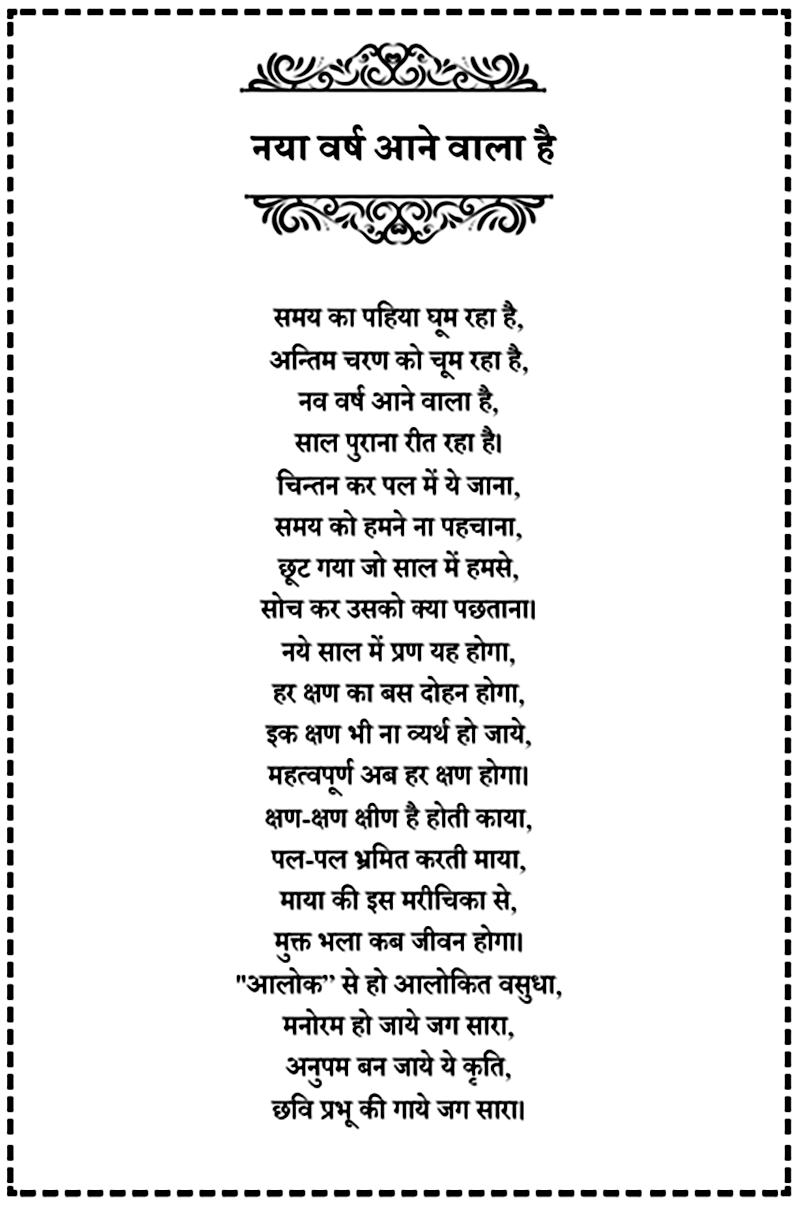 नया वर्ष आने वाला है
समय का पहिया घूम रहा है,
अन्तिम चरण को चूम रहा है,
नव वर्ष आने वाला है,
साल पुराना रीत रहा है।
चिन्तन कर पल में ये जाना,
समय को हमने ना पहचाना,
छूट गया जो साल में हमसे,
सोच कर उसको क्या पछताना।
नये साल में प्रण यह होगा,
हर क्षण का बस दोहन होगा,
इक क्षण भी ना व्यर्थ हो जाये,
महत्वपूर्ण अब हर क्षण होगा।
क्षण-क्षण क्षीण है होती काया,
पल-पल भ्रमित करती माया,
माया की इस मरीचिका से,
मुक्त भला कब जीवन होगा।
"आलोक” से हो आलोकित वसुधा,
मनोरम हो जाये जग सारा,
अनुपम बन जाये ये कृति,
छवि प्रभू की गाये जग सारा।